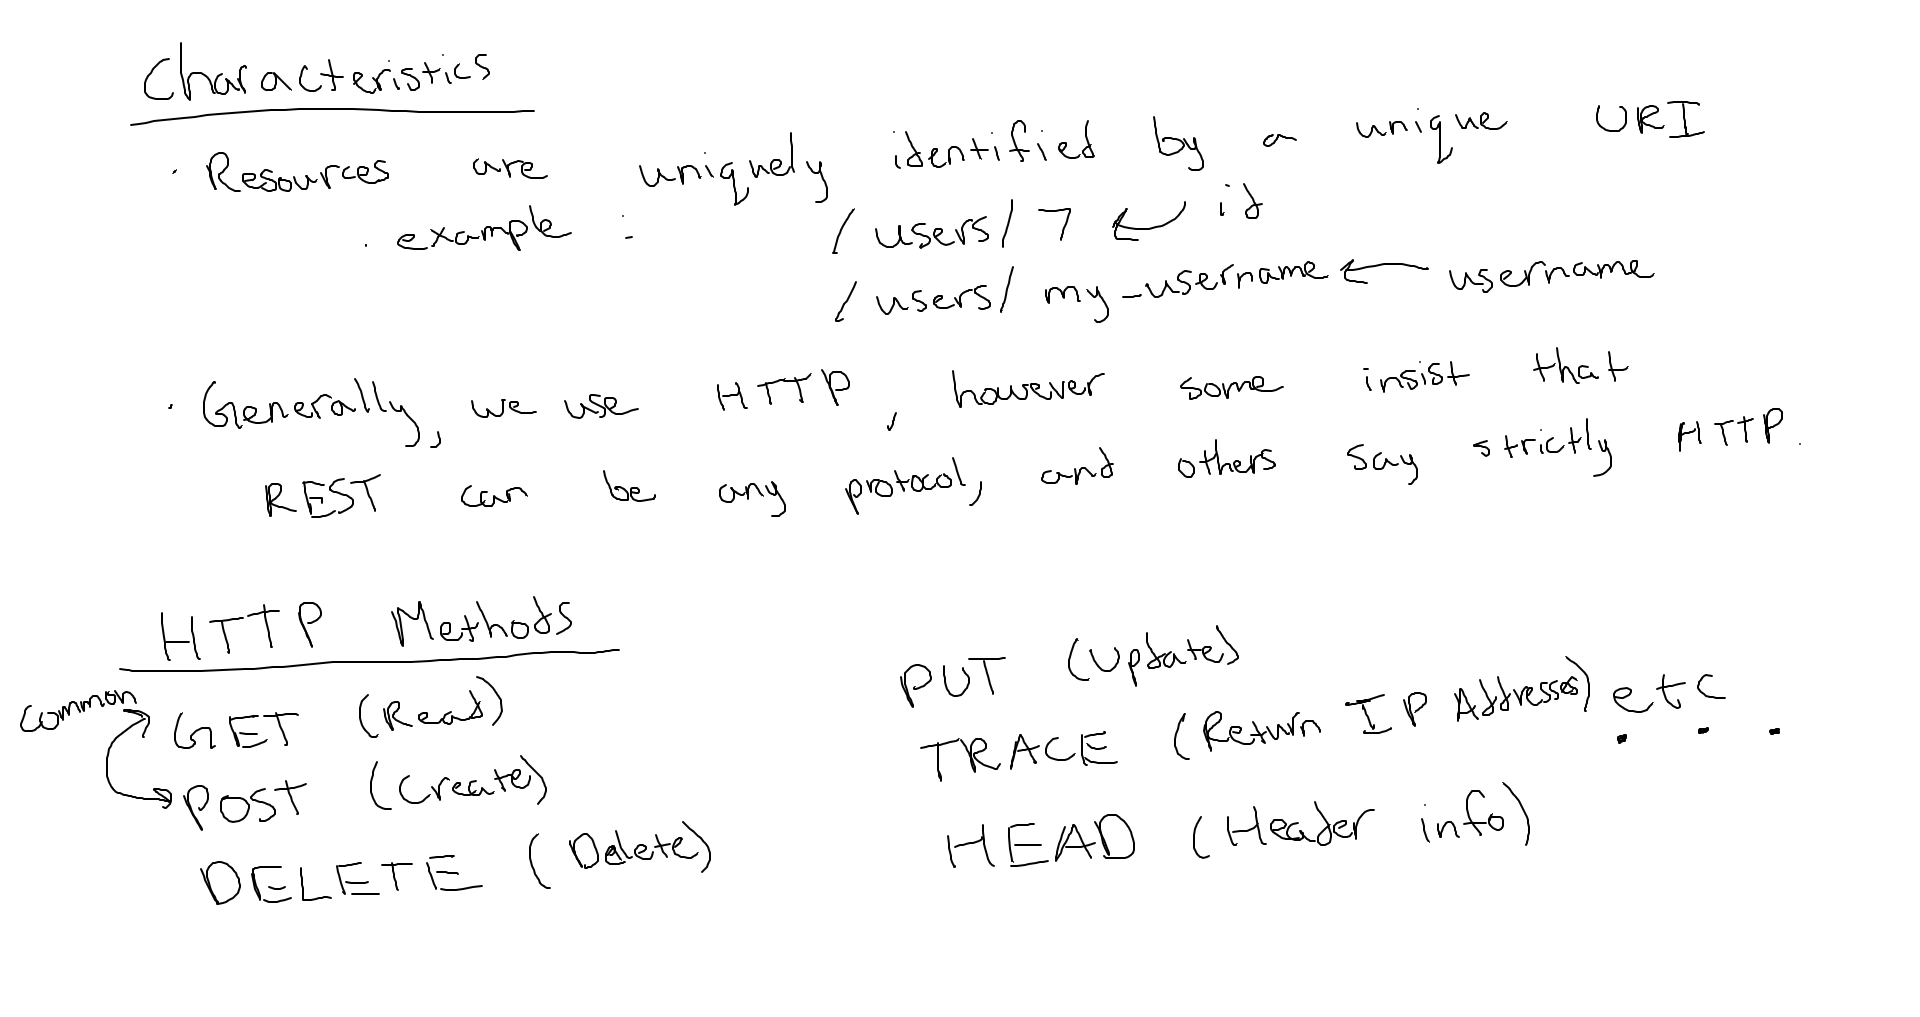 Characteristics
· Resources are uniquely identified by a unique URI
· example : /users/7 ← id
/users/my_username ← username
· Generally, we use HTTP, however some insist that
REST can be any protocol, and others say strictly HTTP.
HTTP Methods
common
GET (Read)
POST (Create)
DELETE (Delete)
PUT (Update)
TRACE (Return IP Addresses) etc
. . .
HEAD (Header info)